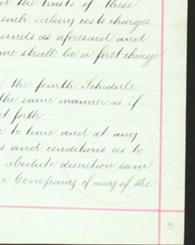 in the trusts of these
such salary costs charges
as aforesaid and
shall be a first charge
the fourth Schedule
the same manner as if
set forth
to time and at any
and conditions as to
absolute discretion
Company of any of the